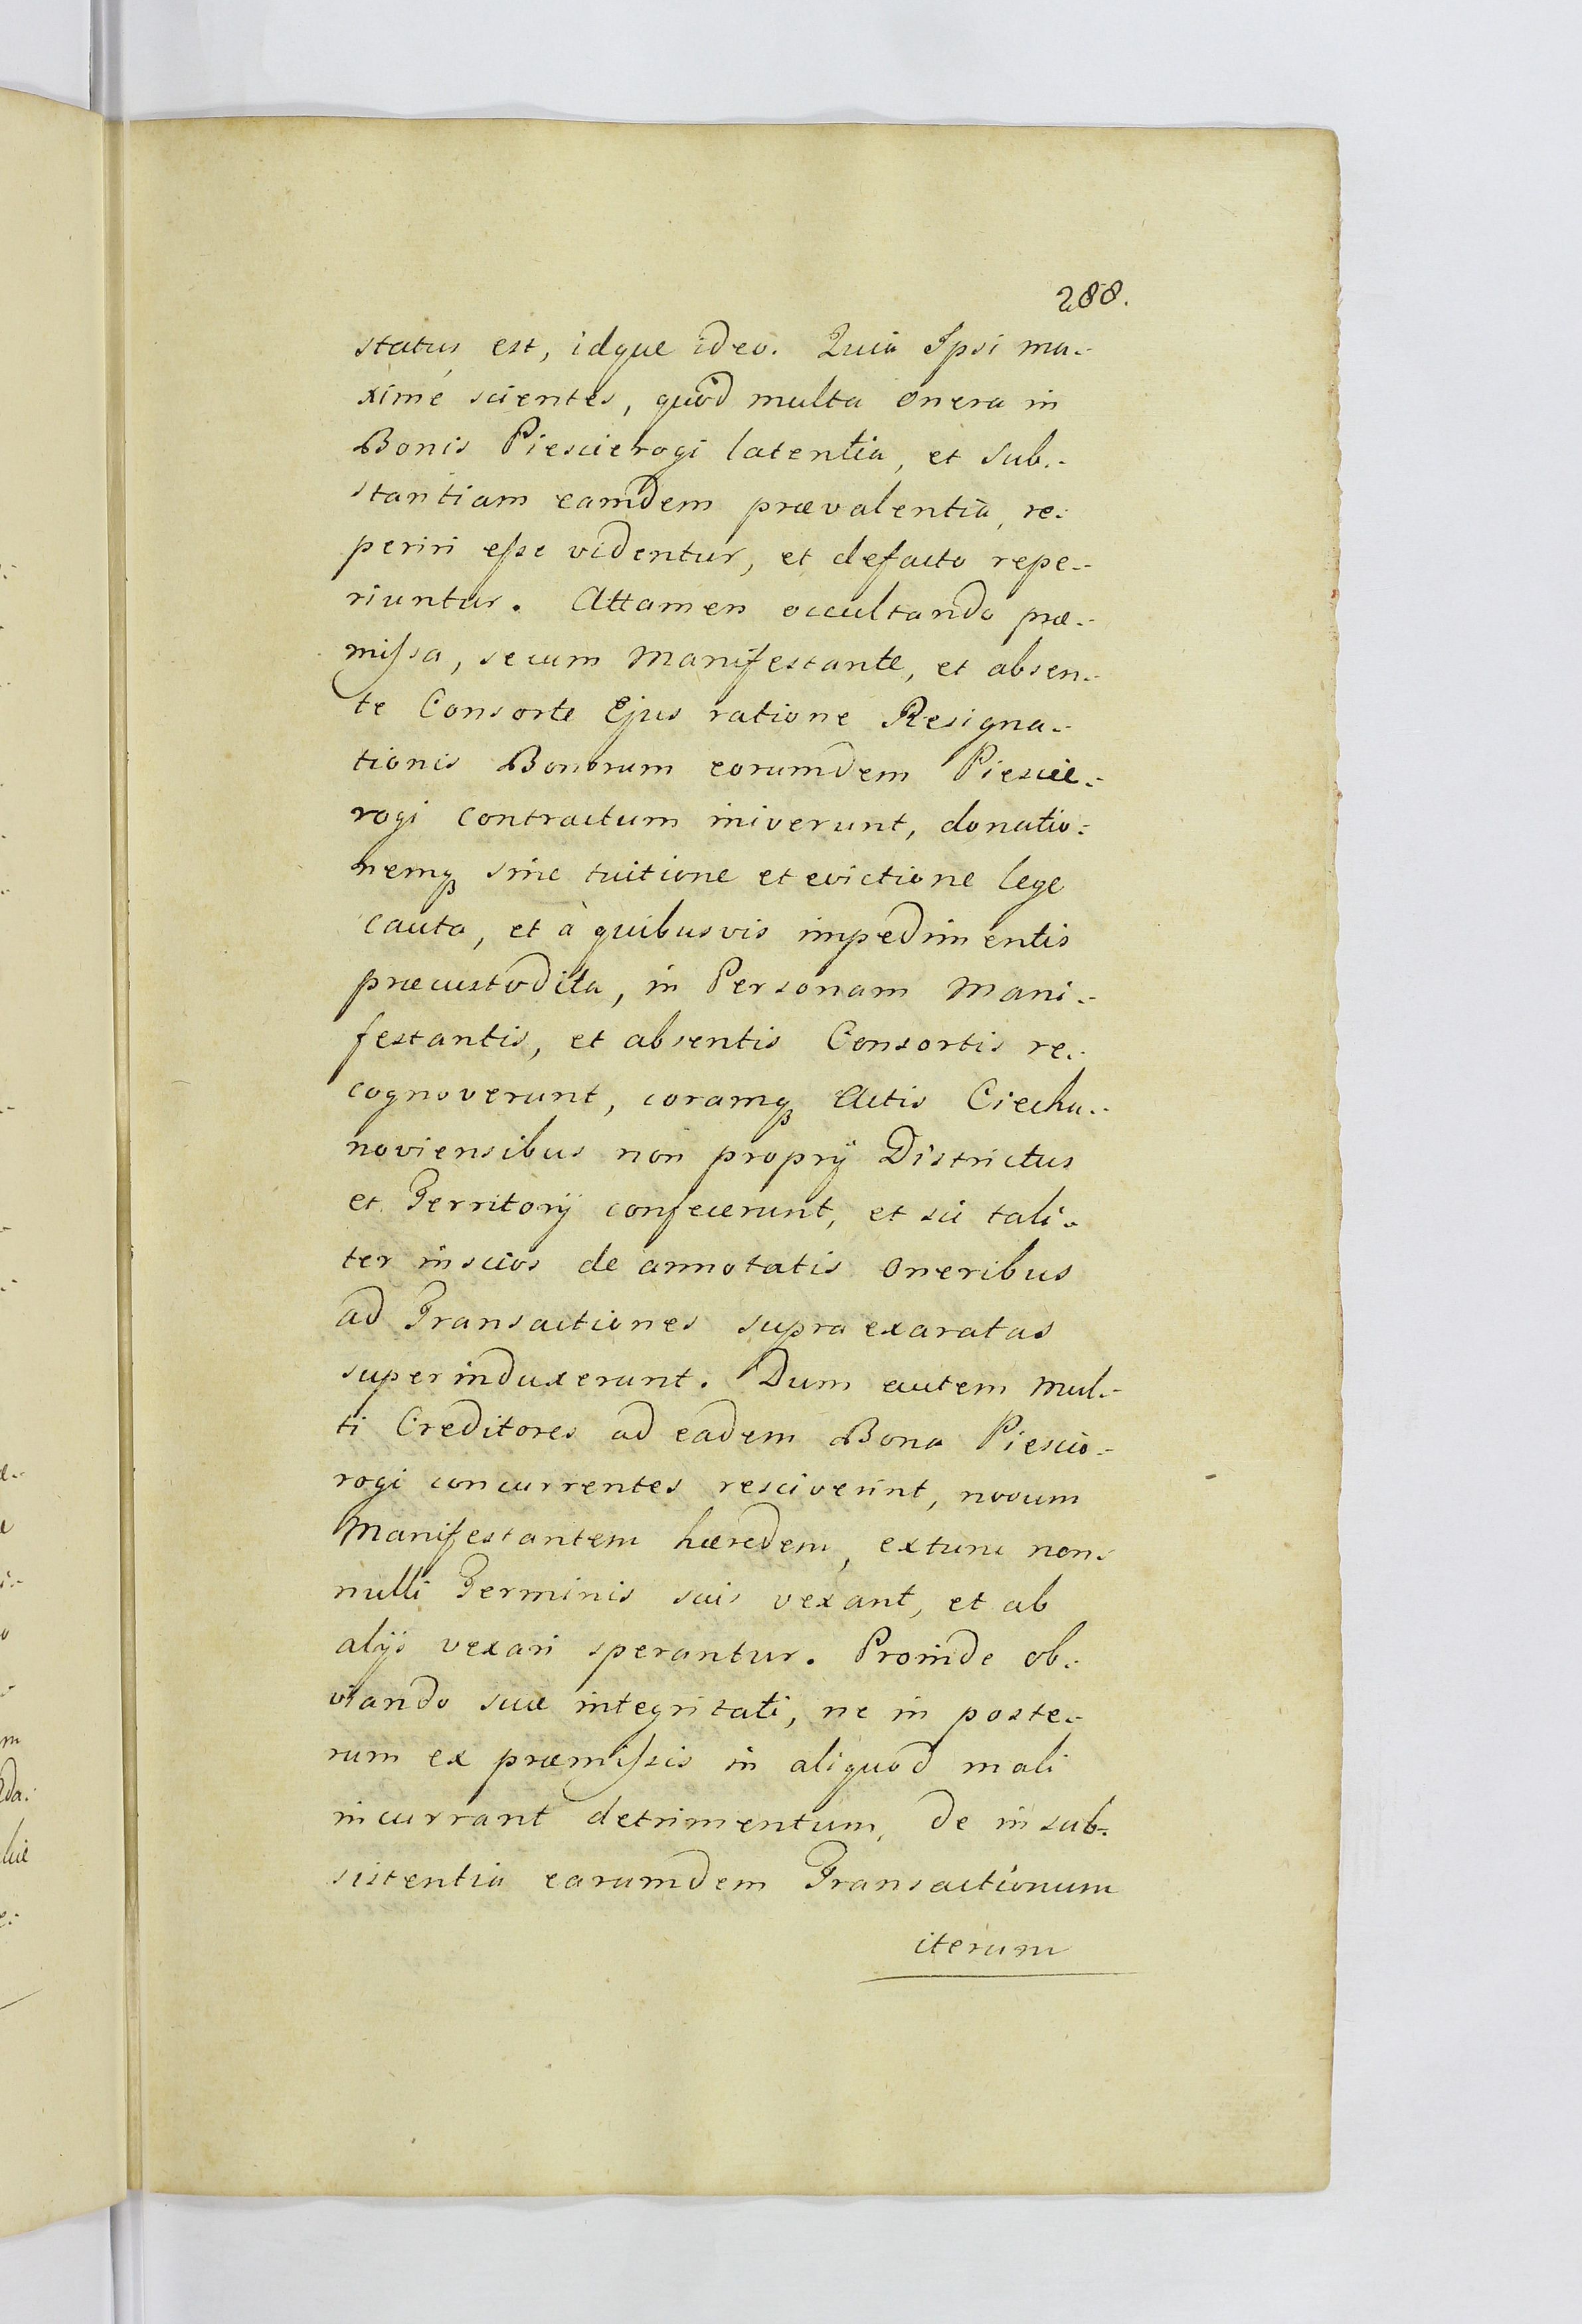 288.
status est, idque ideo. Quia Ipsi ma-
ximé scientes, quòd multa onera in
Bonis Piescierogi latentia, et sub-
stantiam eamdem prævalentia, re-
periri eſse videntur, et defacto repe-
riuntur. Attamen occultando præ-
miſsa, secum Manifestante, et absen-
te Consorte Ejus ratione Resigna-
tionis Bonorum eorumdem Piescie-
rogi contractum iniverunt, donatio-
nemqꝫ sine tuitione et evictione lege
cauta, et à quibusvis impedimentis
præcustodita, in Personam Mani-
festantis, et absentis Consortis re-
cognoverunt, coramqꝫ Actis Ciecha-
noviensibus non proprij Districtus
et Territorij confecerunt, et sic tali-
ter inscios de annotatis oneribus
ad Transactiones supra exaratas
superinduxerunt. Dum autem mul-
ti Creditores ad eadem Bona Piescio-
rogi concurrentes resciverint, novum
Manifestantem hæredem, extunc non-
nulli Terminis suis vexant, et ab
alijs vexari sperantur. Proinde ob-
viando suæ integritati, ne in poste-
rum ex præmiſsis in aliquod mali
incurrant detrimentum, de insub-
sistentia earumdem Transactionum
iterum